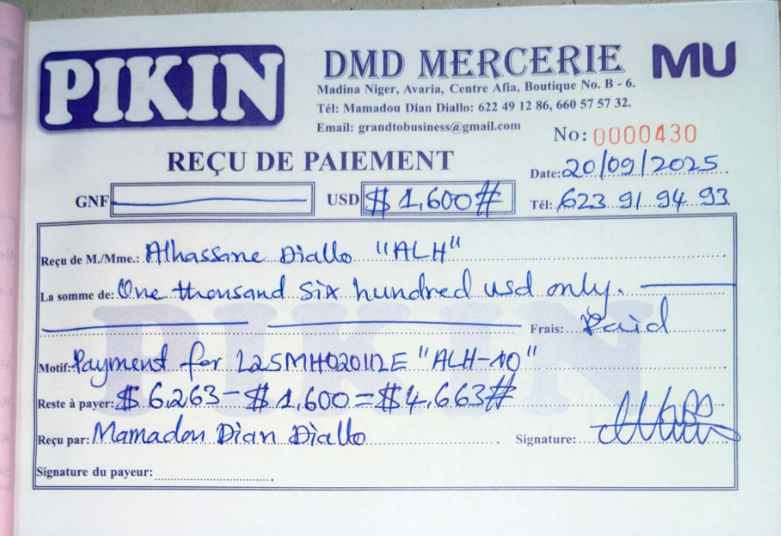 PIKIN
DMD MERCERIE MU
Madina Niger, Avaria, Centre Afia, Boutique No. B - 6.
Tél: Mamadou Dian Diallo: 622 49 12 86, 660 57 57 32.
Email: grandtobusiness@gmail.com
No: 0000430
REÇU DE PAIEMENT
Date: 20/09/2025
GNF USD $ 1,600# Tél: 623 91 94 93
Reçu de M./Mme.: Alhassane Diallo "ALH"
La somme de: One thousand six hundred usd only.
Frais: Paid
Motif: Payment for "ALH-10"
Reste à payer: $ 6,263-$ 1,600=$4,663#
Reçu par: Mamadou Dian Diallo Signature:
Signature du payeur:
PIKIN